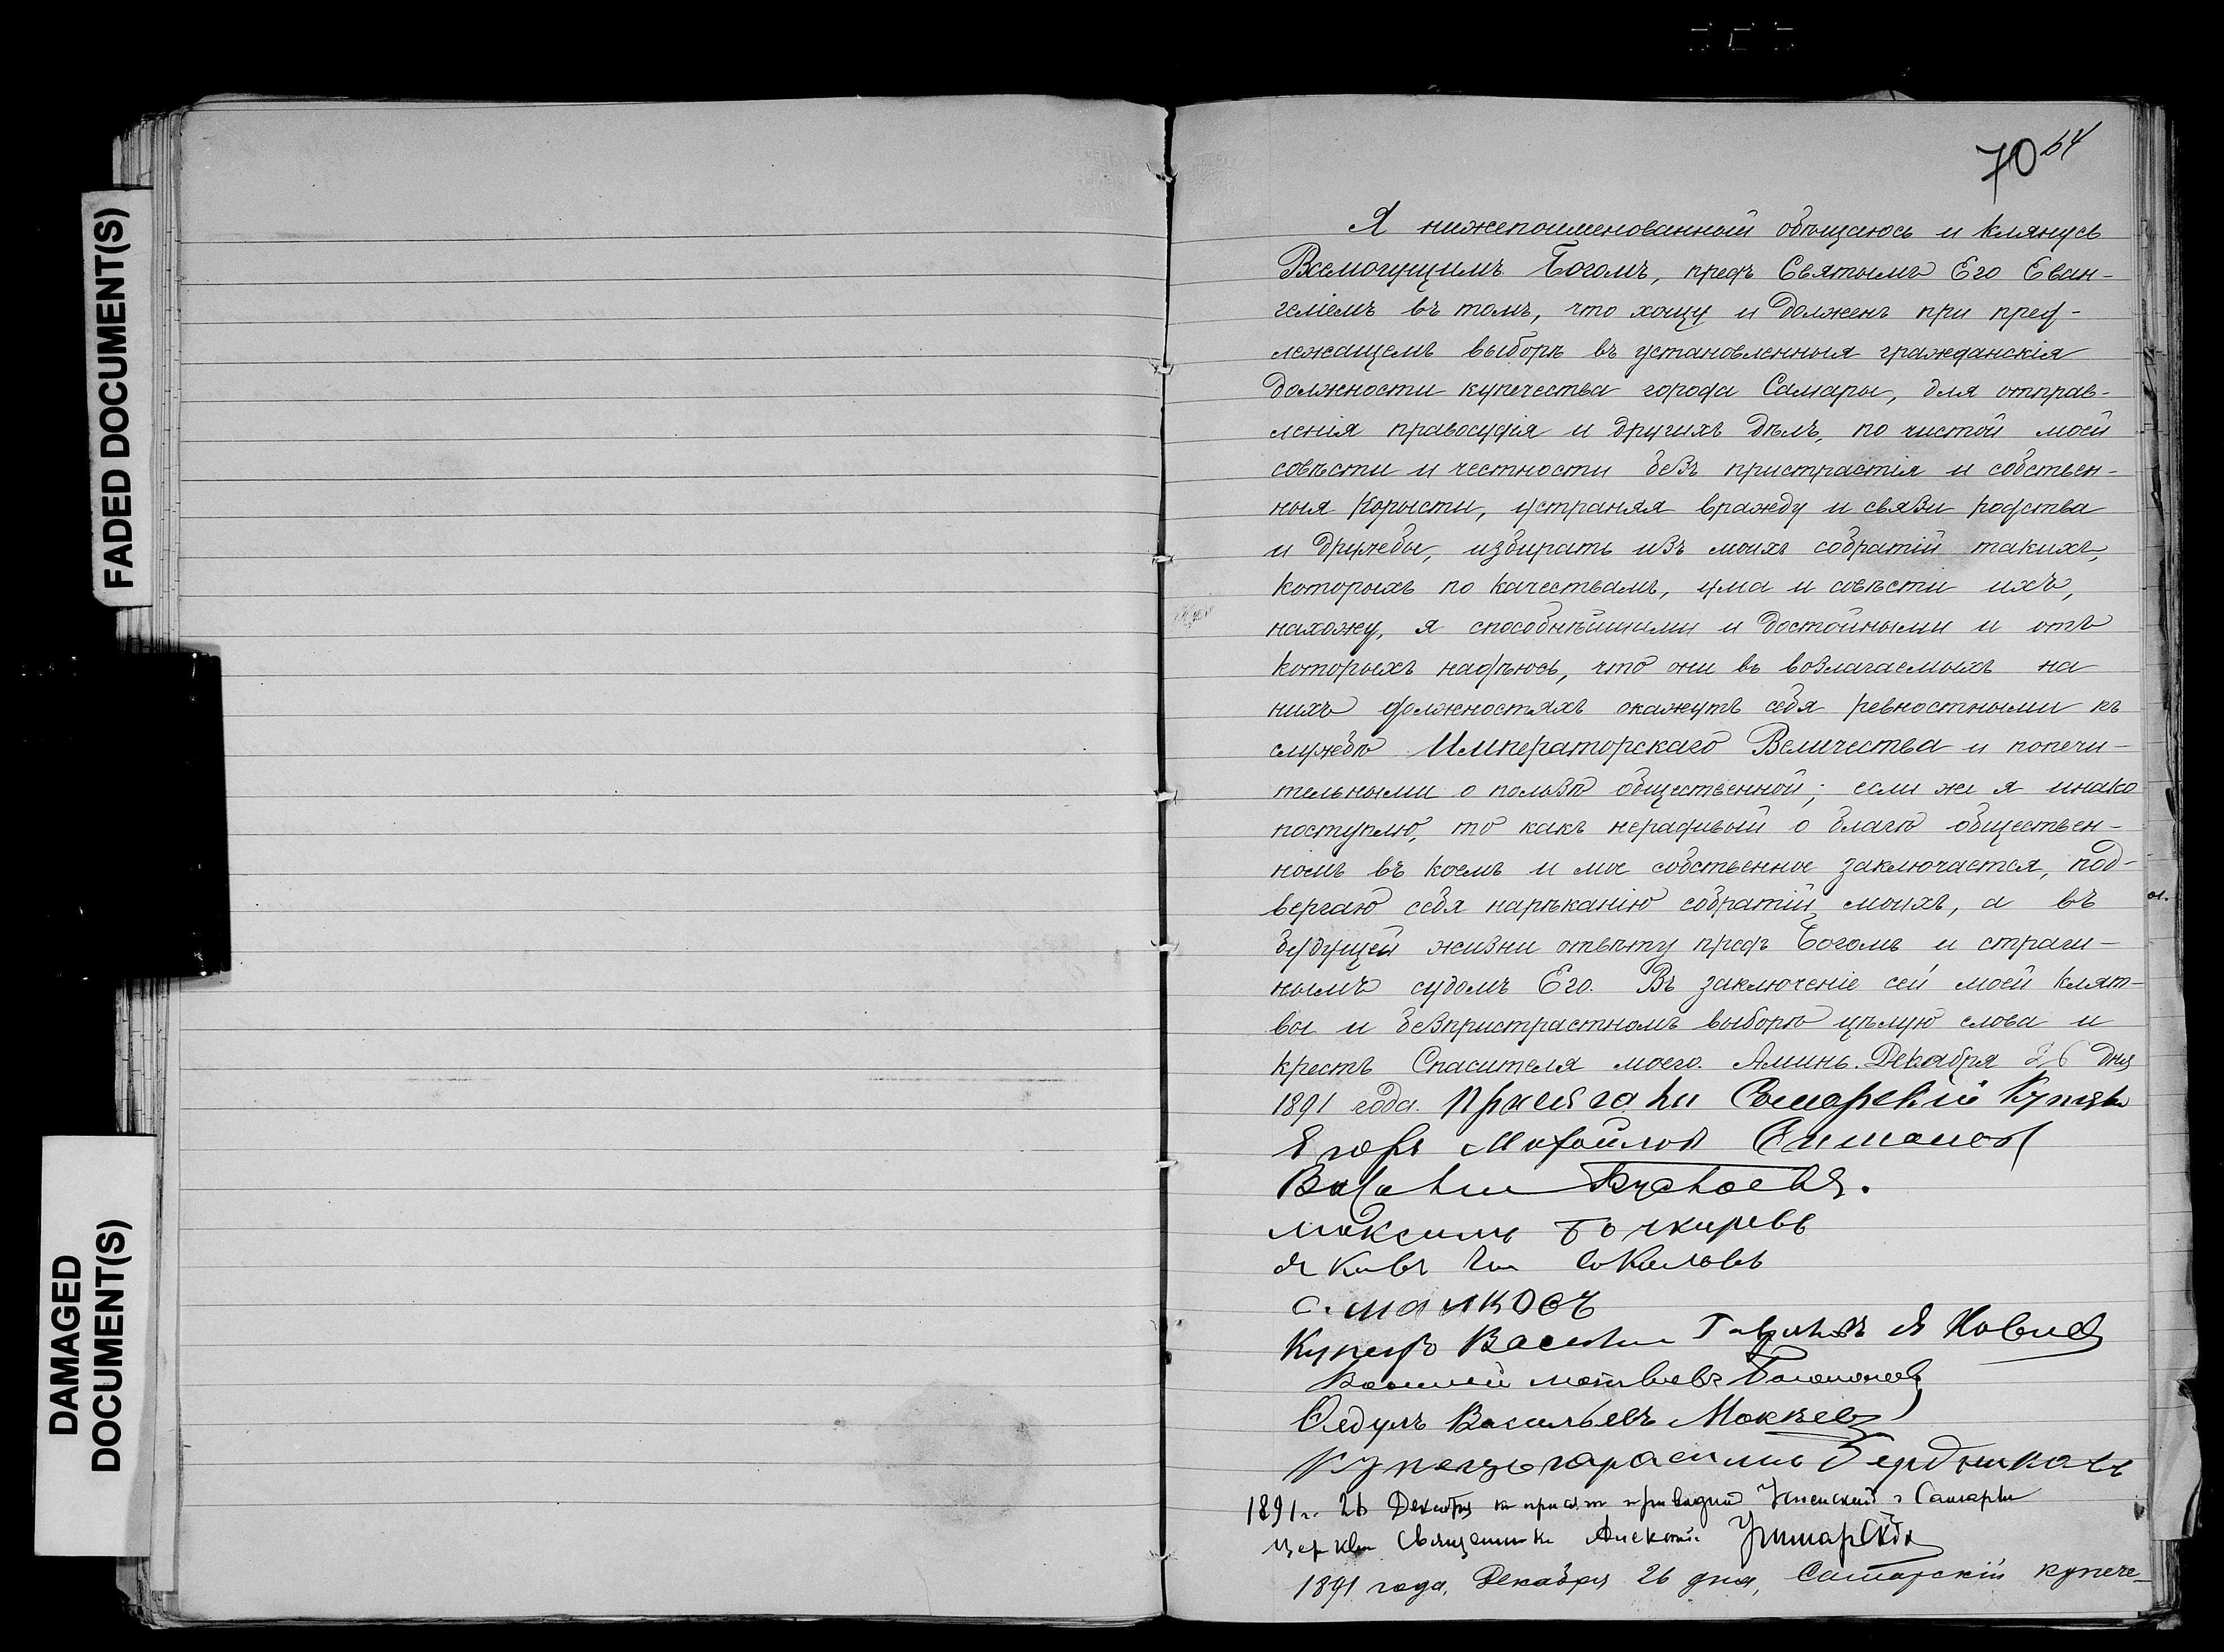 FADED DOCUMENT(S)
DAMAGED
DOCUMENT(S)
70 64
Я нижепоименованный обѣщаюсь и клянусь
Всемогущимъ Богомъ, предъ Святымъ Его Еван-
геліемъ въ томъ, что хощу и долженъ при пред-
лежащемъ выборѣ въ установленныя гражданскія
должности купечества города Самары, для отправ-
ленія правосудія и другихъ дѣлъ, по чистой моей
совѣсти и честности безъ пристрастія и собствен-
ныя корысти, устраняя вражду и связи родства
и дружебы, избирать изъ моихъ собратій такихъ,
которыхъ по качествамъ, ума и совѣсти ихъ,
нахожу, я способнѣйшими и достойными и отъ
которыхъ надѣюсь, что они въ возлагаемыхъ на
нихъ должностяхъ окажутъ себя ревностными къ
службѣ Императорскаго Величества и попечи-
тельными о пользѣ общественной; если же я инако
поступлю, то какъ нерадивый о благѣ обществен-
номъ въ коемъ и мое собственное заключается, под-
вергаю себя нарѣканію собратій моихъ, а въ
будущей жизни отвѣту предъ Богомъ и страш-
нымъ судомъ Его. Въ заключеніе сей моей клят-
вы и безпристрастномъ выборѣ цѣлую слова и
крестъ Спасителя моего. Аминь. Декабря 26 дня
1891 года. Самарскій Купецъ
Егоръ Михайлов
Максимъ
Яковъ Соколовъ
Купецъ Василий Новиков
Василий Матвеевъ
Федулъ Васильевъ Мокеев
Купецъ Гарасимъ Бердниковъ
1891 г. 26 Декабря к присяге приводил Успенской г. Самары
церкви Священникъ Алексѣй
1891 года, Декабря 26 дня, Самарскій купече-